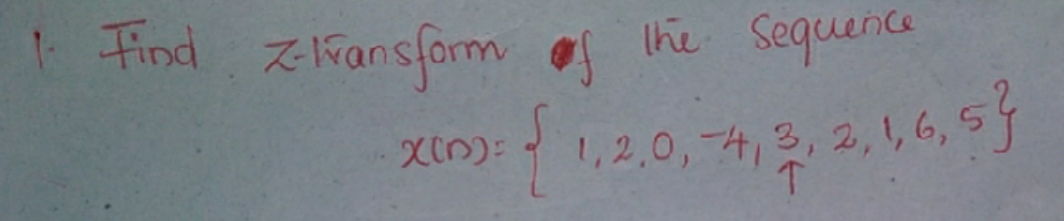 1. Find Z-transform of the sequence
x(n)= { 1, 2, 0, -4, 3, 2, 1, 6, 5 }
↑